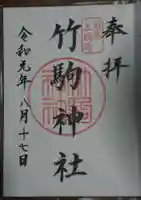 奉拝
竹駒神社
令和元年八月十七日